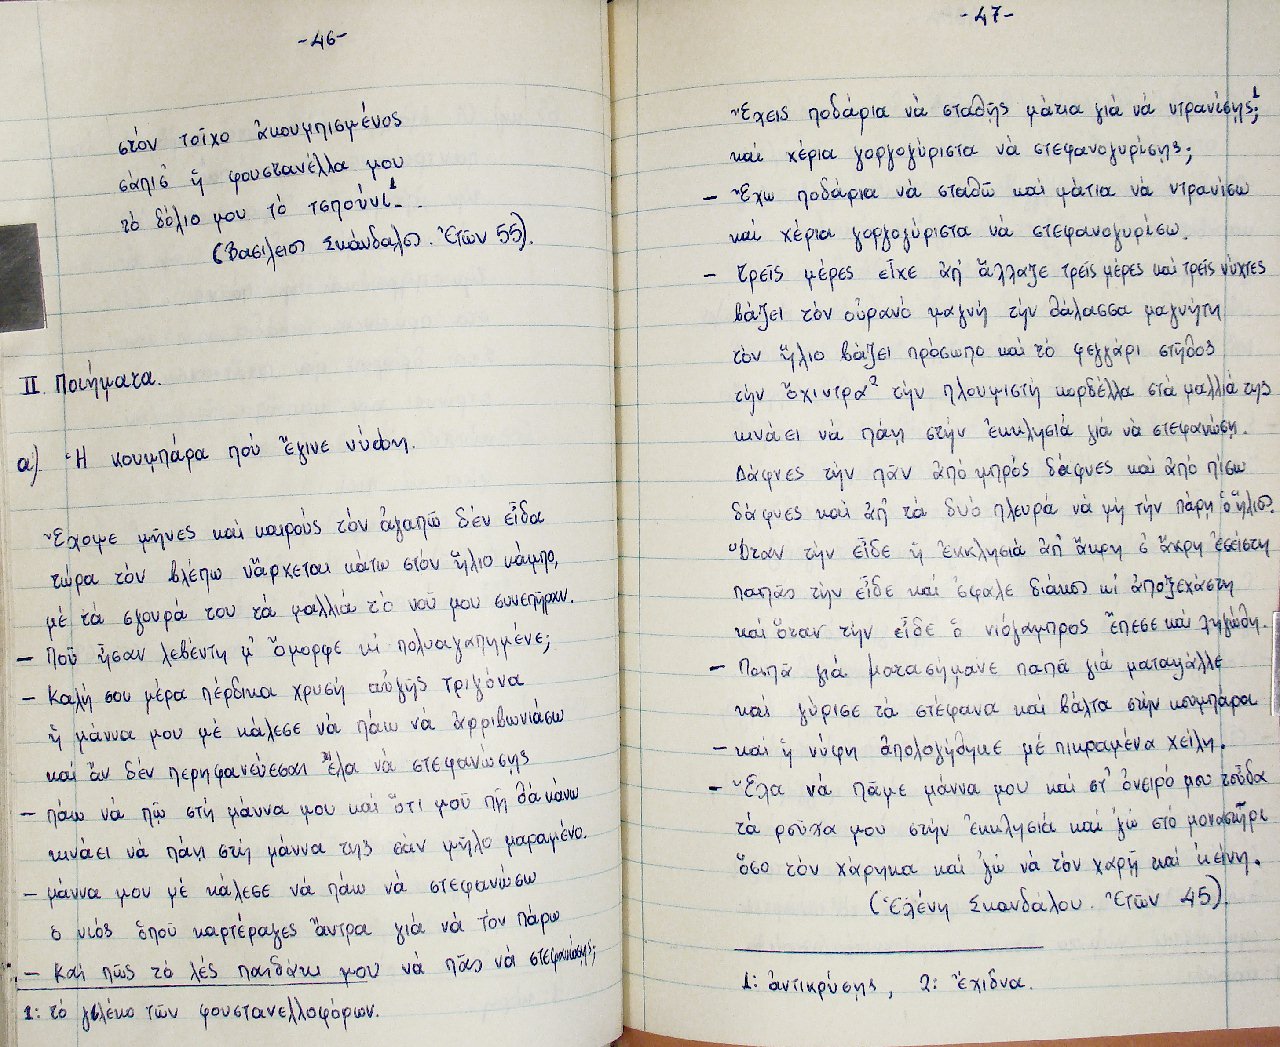 -46-
στόν τοῖχο ἀκουμπισμένος
σάπισ' ἡ φουστανέλλα μου
τό δόλιο μου τό τσπούνι¹-.
(Βασίλειος Σκάνδαλος. Ἐτῶν 55).
II. Ποιήματα.
α). Ἡ κουμπάρα πού ἔγινε νύφη.
Ἔχομε μῆνες καί καιρούς τόν ἀγαπῶ δέν εἶδα
τώρα τόν βλέπω νἄρχεται κάτω στόν ἥλιο κάμπο,
μέ τά σγουρά του τά μαλλιά τό νοῦ μου συνεπῆραν.
- Ποῦ ἦσαν λεβέντη μ' ὄμορφε κι πολυαγαπημένε;
- Καλή σου μέρα πέρδικα χρυσή αὐγῆς τριγόνα
ἡ μάννα μου μέ κάλεσε νά πάω νά ἀρριβωνιάσω
καί ἄν δέν περηφανεύεσαι ἔλα νά στεφανώσης
- πάω νά πῶ στή μάννα μου καί ὅτι μοῦ πῇ θά κάνω
κινάει νά πάη στή μάννα της σάν μῆλο μαραμένο.
- μάννα μου μέ κάλεσε νά πάω νά στεφανώσω
ὁ υιός ὁποῦ καρτέραγες ἄντρα γιά νά τόν πάρω
- Καί πῶς τό λές παιδάκι μου νά πᾶς νά στεφανώσης;
1: τό γιλέκο τῶν φουστανελλοφόρων.
-47-
Ἔχεις ποδάρια νά σταθῇς μάτια γιά νά ντρανίσης;¹
καί χέρια γοργογύριστα νά στεφανογυρίσης;
- Ἔχω ποδάρια νά σταθῶ καί μάτια νά ντρανίσω
καί χέρια γοργογύριστα νά στεφανογυρίσω.
- Τρεῖς μέρες εἶχε ἀπ' ἄλλαζε τρεῖς μέρες καί τρεῖς νύχτες
βάζει τόν οὐρανό μαγνή τήν θάλασσα μαγνήτη
τόν ἥλιο βάζει πρόσωπο καί τό φεγγάρι στῆθος
τήν ὄχιντρα² τήν πλουμιστή κορδέλλα στά μαλλιά της
κινάει νά πάη στήν ἐκκλησιά γιά νά στεφανώση.
Δάφνες τήν πᾶν ἀπό μπρός δάφνες καί ἀπό πίσω
δάφνες καί ἀπ' τά δυό πλευρά νά μή τήν πάρη ὁ ἥλιος.
Ὅταν τήν εἶδε ἡ ἐκκλησιά ἀπ' ἄκρη σ' ἄκρη ἐσείστη
παπᾶς τήν εἶδε καί ἔσφαλε διάκος κι ἀποξεχάστη
καί ὅταν τήν εἶδε ὁ νιόγαμπρος ἔπεσε καί λιγώθη.
- Παπᾶ γιά ματασήμανε παπᾶ γιά ματαψάλλε
καί γύρισε τά στέφανα καί βάλτα στήν κουμπάρα
- καί ἡ νύφη ἀπολογήθηκε μέ πικραμένα χείλη.
- Ἔλα νά πᾶμε μάννα μου καί στ' ὄνειρό μου τοὖδα
τά ροῦχα μου στήν ἐκκλησιά καί 'γώ στό μοναστῆρι
ὅσο τόν χάρηκα καί 'γώ νά τόν χαρῇ καί 'κείνη.
(Ἑλένη Σκανδάλου. Ἐτῶν 45).
1: ἀντικρύσης, 2: Ἔχιδνα.